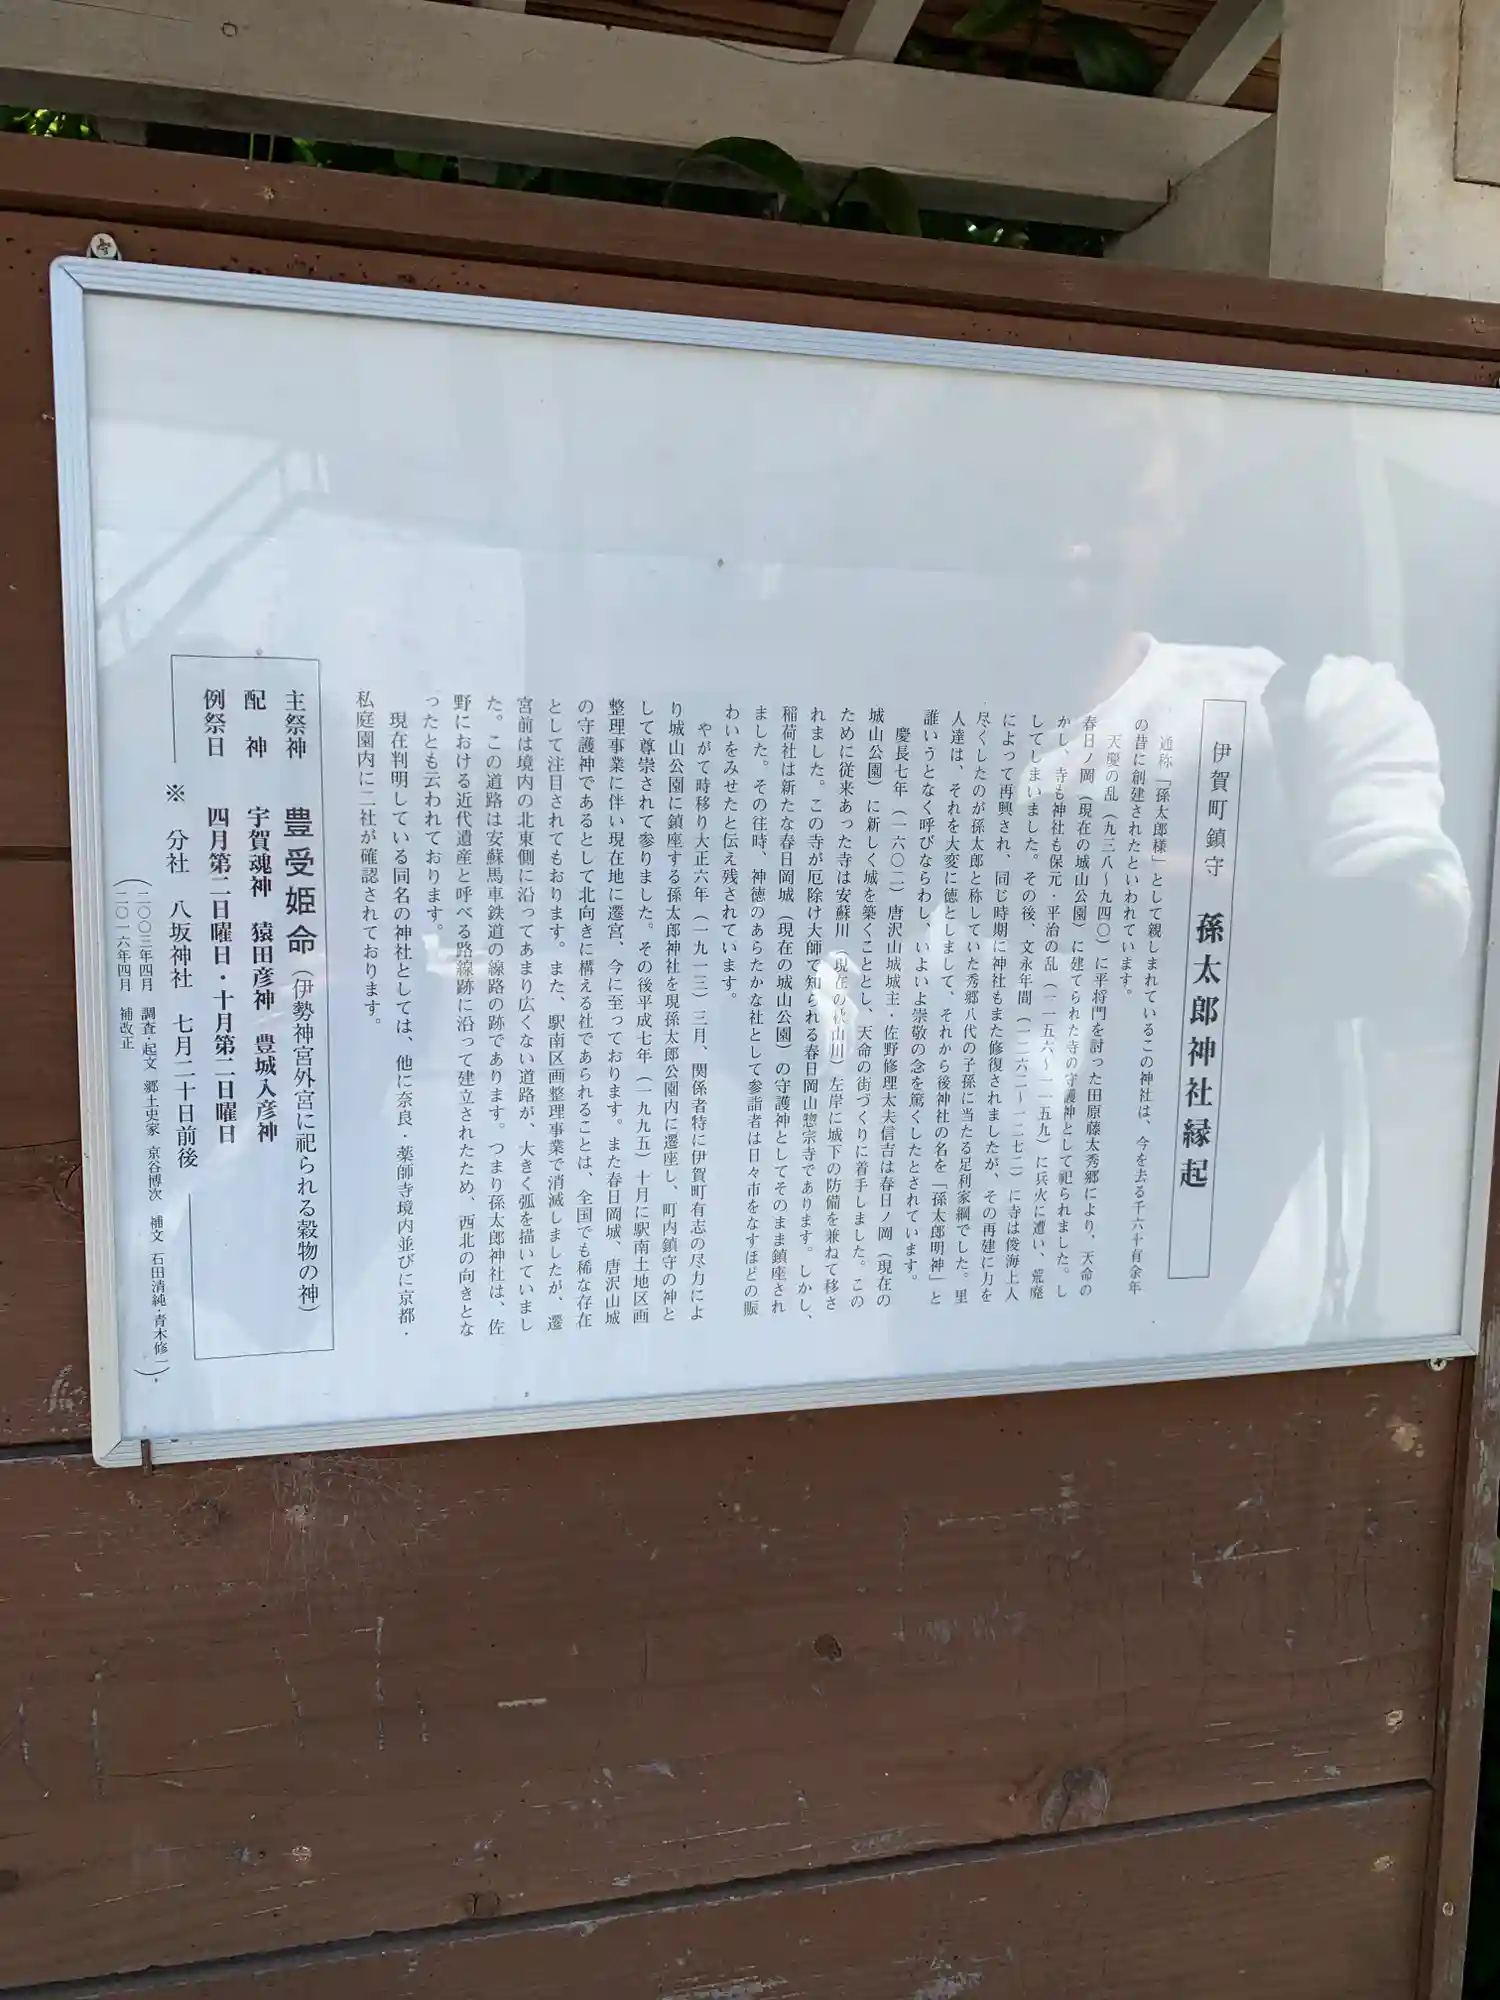 伊賀町鎮守 孫太郎神社縁起
通称「孫太郎様」として親しまれているこの神社は、今を去る千六十有余年
の昔に創建されたといわれています。
天慶の乱（九三八〜九四〇）に平将門を討った田原藤太秀郷により、天命の
春日ノ岡（現在の城山公園）に建てられた寺の守護神として祀られました。し
かし、寺も神社も保元・平治の乱（一一五六〜一一五九）に兵火に遭い、荒廃
してしまいました。その後、文永年間（一二六二〜一二七二）に寺は俊海上人
によって再興され、同じ時期に神社もまた修復されましたが、その再建に力を
尽くしたのが孫太郎と称していた秀郷八代の子孫に当たる足利家綱でした。里
人達は、それを大変に徳としまして、それから後神社の名を「孫太郎明神」と
誰いうとなく呼びならわし、いよいよ崇敬の念を篤くしたとされています。
慶長七年（一六〇二）唐沢山城城主・佐野修理太夫信吉は春日ノ岡（現在の
城山公園）に新しく城を築くこととし、天命の街づくりに着手しました。この
ために従来あった寺は安蘇川（現在の秋山川）左岸に城下の防備を兼ねて移さ
れました。この寺が厄除け大師で知られる春日岡山惣宗寺であります。しかし、
稲荷社は新たな春日岡城（現在の城山公園）の守護神としてそのまま鎮座され
ました。その往時、神徳のあらたかな社として参詣者は日々市をなすほどの賑
わいをみせたと伝え残されています。
やがて時移り大正六年（一九一三）三月、関係者特に伊賀町有志の尽力によ
り城山公園に鎮座する孫太郎神社を現孫太郎公園内に遷座し、町内鎮守の神と
して尊崇されて参りました。その後平成七年（一九九五）十月に駅南土地区画
整理事業に伴い現在地に遷宮、今に至っております。また春日岡城、唐沢山城
の守護神であるとして北向きに構える社であられることは、全国でも稀な存在
として注目されてもおります。また、駅南区画整理事業で消滅しましたが、遷
宮前は境内の北東側に沿ってあまり広くない道路が、大きく弧を描いていまし
た。この道路は安蘇馬車鉄道の線路の跡であります。つまり孫太郎神社は、佐
野における近代遺産と呼べる路線跡に沿って建立されたため、西北の向きとな
ったとも云われております。
現在判明している同名の神社としては、他に奈良・薬師寺境内並びに京都・
私庭園内に二社が確認されております。
主祭神 豊受姫命（伊勢神宮外宮に祀られる穀物の神）
配神 宇賀魂神 猿田彦神 豊城入彦神
例祭日 四月第二日曜日・十月第二日曜日
※ 分社 八坂神社 七月二十日前後
（二〇〇三年四月 調査・起文 郷土史家 京谷博次 補文 石田清純・青木修一）
（二〇一六年四月 補改正